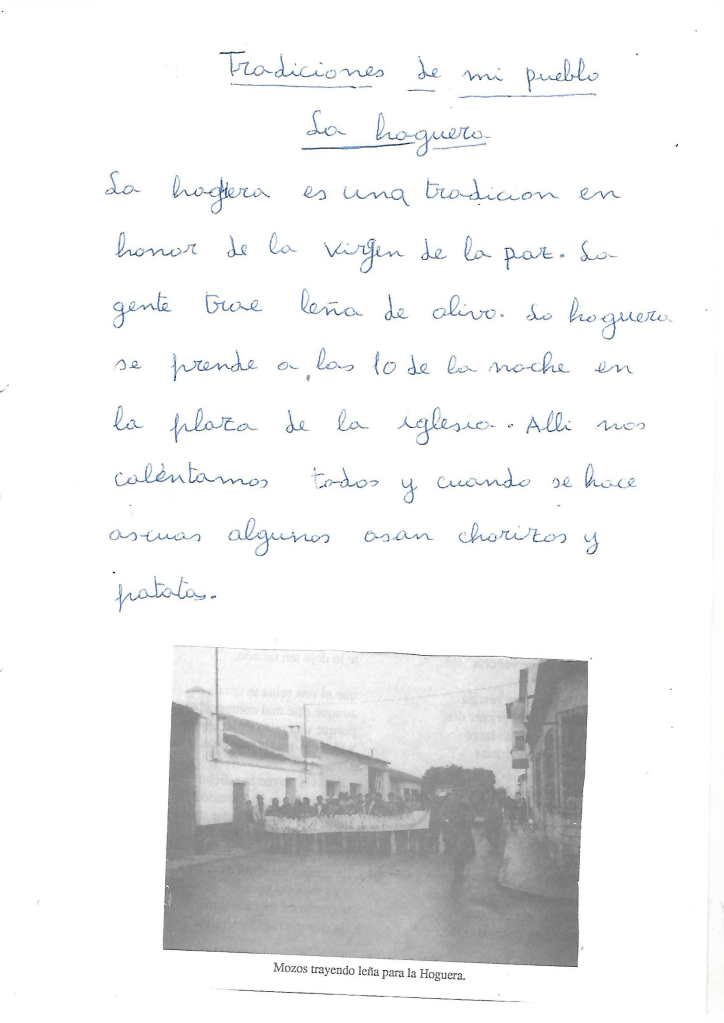 Tradiciones de mi pueblo
La hoguera
La hogera es una tradicion en
honor de la virgen de la paz. La
gente trae leña de olivo. La hoguera
se prende a las 10 de la noche en
la plaza de la iglesia. Alli nos
caléntamos todos y cuando se hace
ascuas algunos asan chorizos y
patatas.
Mozos trayendo leña para la Hoguera.